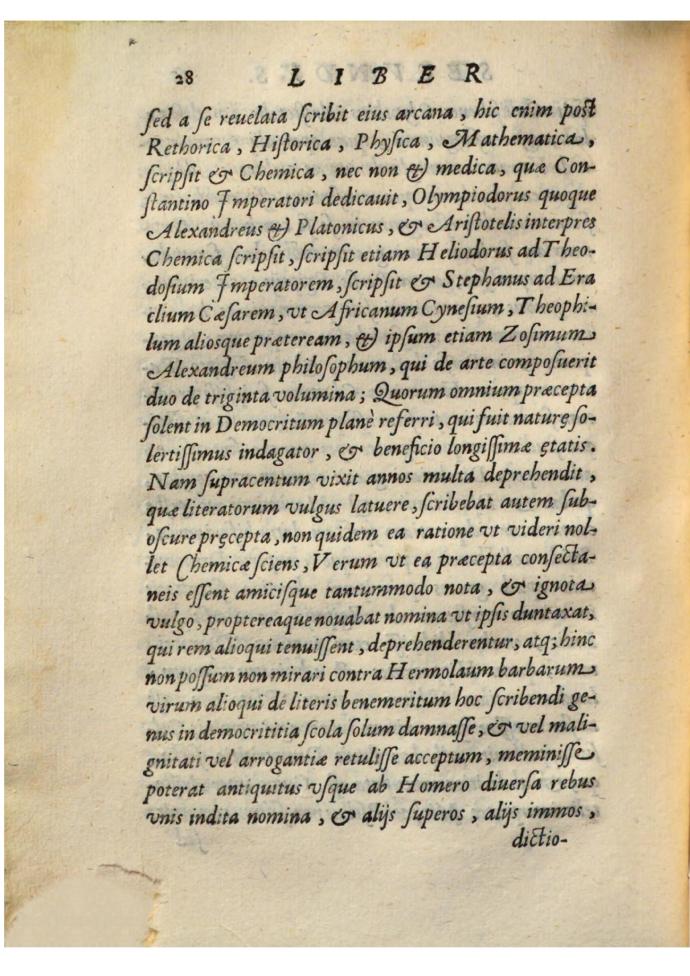 28 LIBER
sed a se reuelata scribit eius arcana, hic enim post
Rethorica, Historica, Physica, Mathematica,
scripsit & Chemica, nec non & medica, quæ Con-
stantino Imperatori dedicauit, Olympiodorus quoque
Alexandreus & Platonicus, & Aristotelis interpres
Chemica scripsit, scripsit etiam Heliodorus ad Theo-
dosium Imperatorem, scripsit & Stephanus ad Era
clium Cæsarem, vt Africanum Cynesium, Theophi-
lum aliosque præteream, & ipsum etiam Zosimum
Alexandreum philosophum, qui de arte composuerit
duo de triginta volumina; Quorum omnium præcepta
solent in Democritum planè referri, qui fuit naturę so-
lertissimus indagator, & beneficio longissimæ ętatis.
Nam supracentum vixit annos multa deprehendit,
quæ literatorum vulgus latuere, scribebat autem sub-
oscure pręcepta, non quidem ea ratione vt videri nol-
let Chemicæ sciens, Verum vt ea præcepta consecta-
neis essent amicisque tantummodo nota, & ignota
vulgo, proptereaque nouabat nomina vt ipsis duntaxat,
qui rem alioqui tenuissent, deprehenderentur, atq; hinc
non possum non mirari contra Hermolaum barbarum
virum alioqui de literis benemeritum hoc scribendi ge-
nus in democrititia scola solum damnasse, & vel mali-
gnitati vel arrogantiæ retulisse acceptum, meminisse
poterat antiquitus vsque ab Homero diuersa rebus
vnis indita nomina, & alijs superos, alijs immos,
dictio-